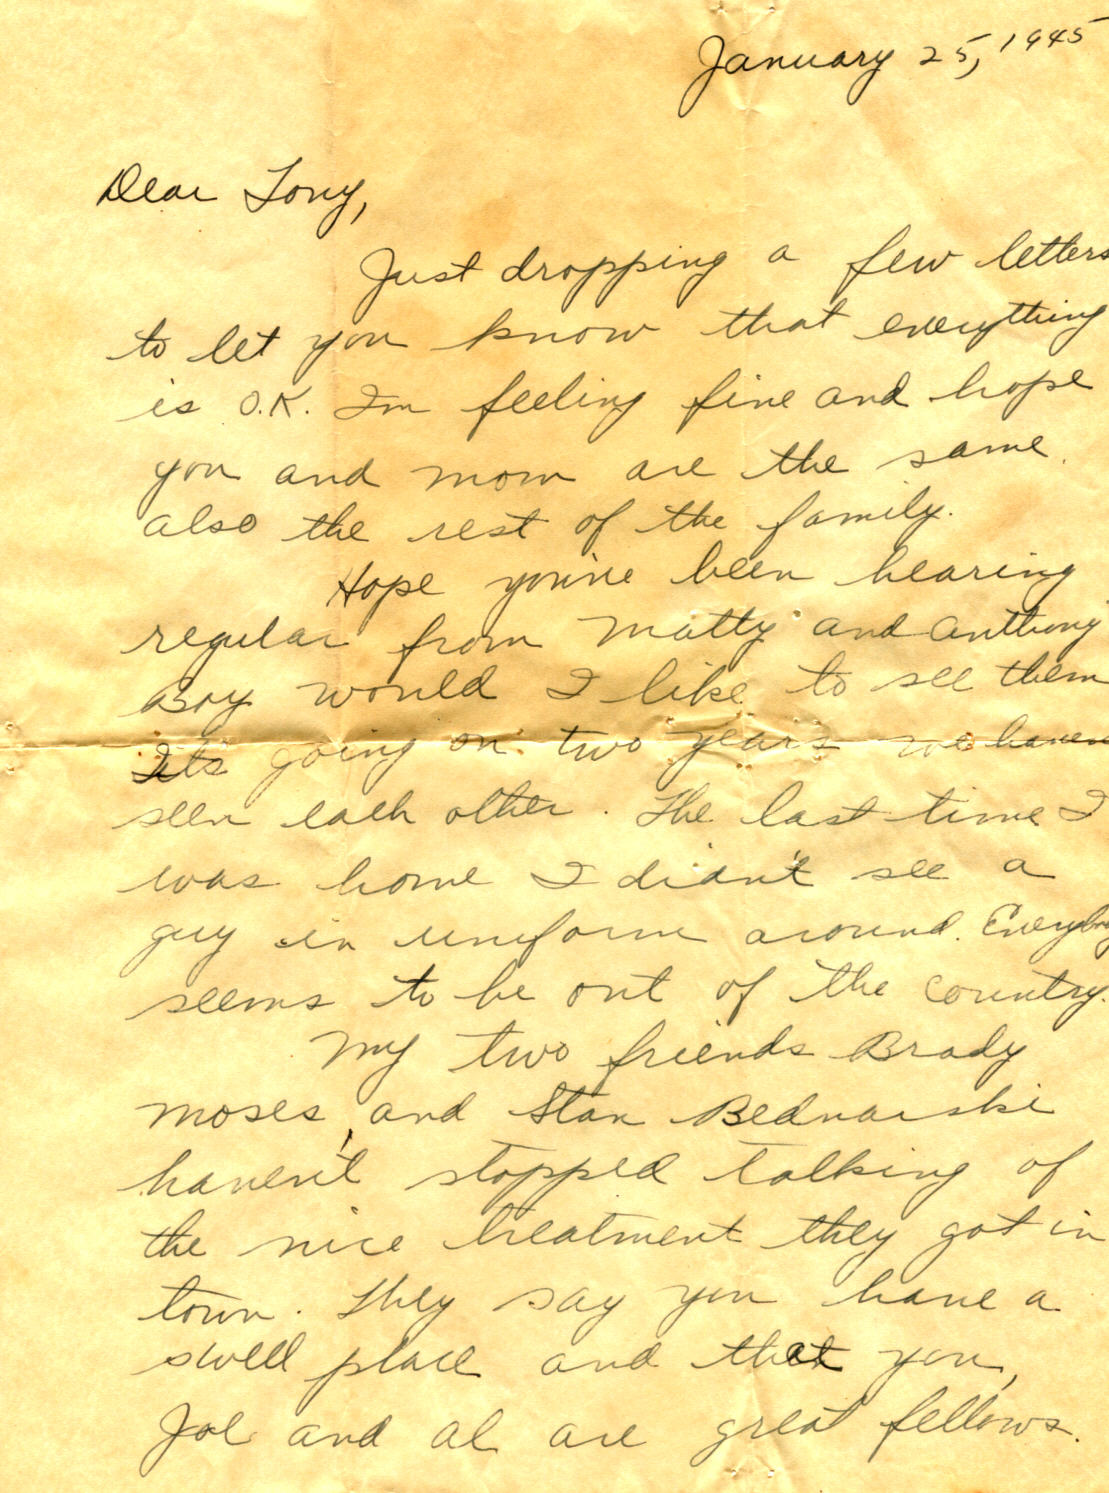 January 25, 1945
Dear Tony,
Just dropping a few letters
to let you know that everything
is O.K. Im feeling fine and hope
you and mom are the same.
also the rest of the family.
Hope you've been hearing
regular from Matty and Anthony
Boy would I like to see them
Its going on two years we haven
seen each other. The last time I
was home I didn't see a
guy in uniform around. Everybody
seems to be out of the country.
My two friends Brady
Moses, and Stan Bednarski
haven't stopped talking of
the nice treatment they got in
town. They say you have a
swell place and that you,
Joe and Al are great fellows.